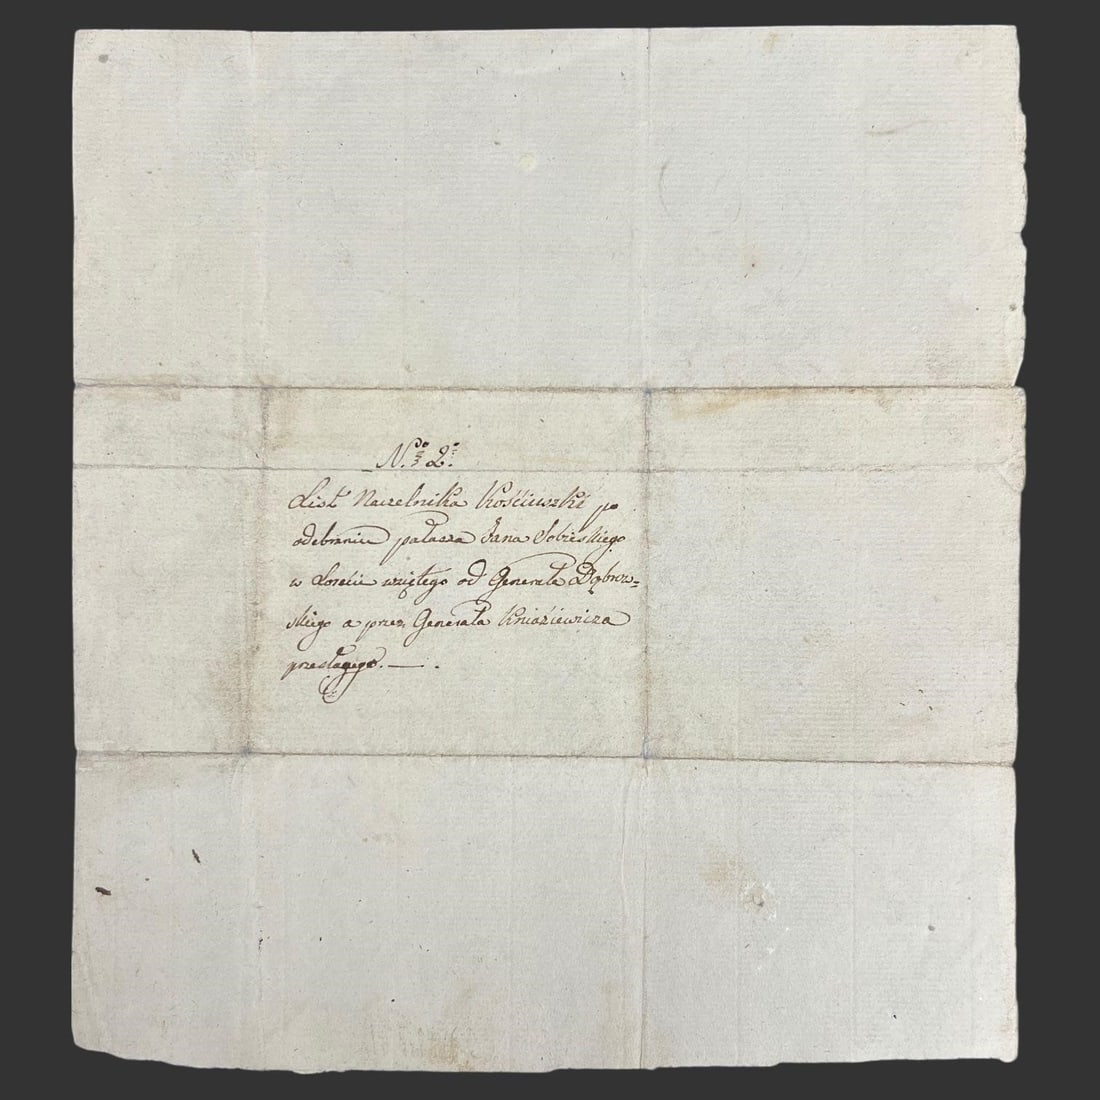 N.do 2.
List Naczelnika Kościuszki po
odebraniu pałasza Jana Sobieskiego
w Lorecie wziętego od Generała Dąbrow=
skiego a przez Generała Kniaźiewicza
przesłanego. — .